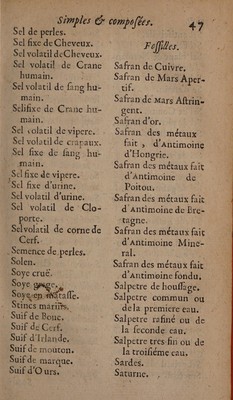 Simples & composées.
47
Sel de perles.
Sel fixe de Cheveux.
Sel volatil de Cheveux.
Sel volatil de Crane
humain.
Sel volatil de sang hu-
main.
Sel fixe de Crane hu-
main.
Sel volatil de vipere.
Sel volatil de crapaux.
Sel fixe de sang hu-
main.
Sel fixe de vipere.
Sel fixe d'urine.
Sel volatil d'urine.
Sel volatil de Clo-
porte.
Sel volatil de corne de
Cerf.
Semence de perles.
Solen.
Soye cruë.
Soye
Soye en matasse.
Stincs marins.
Suif de Bouc.
Suif de Cerf.
Suif d'Irlande.
Suif de mouton.
Suif de marque.
Suif d'Ours.
Fossiles.
Safran de Cuivre.
Safran de Mars Aper-
tif.
Safran de Mars Astrin-
gent.
Safran d'or.
Safran des métaux
fait, d'Antimoine
d'Hongrie.
Safran des métaux fait
d'Antimoine de
Poitou.
Safran des métaux fait
d'Antimoine de Bre-
tagne.
Safran des métaux fait
d'Antimoine Mine-
ral.
Safran des métaux fait
d'Antimoine fondu.
Salpetre de houssage.
Salpetre commun ou
de la premiere eau.
Salpetre rafiné ou de
la seconde eau.
Salpetre tres-fin ou de
la troisiéme eau.
Sardes.
Saturne.